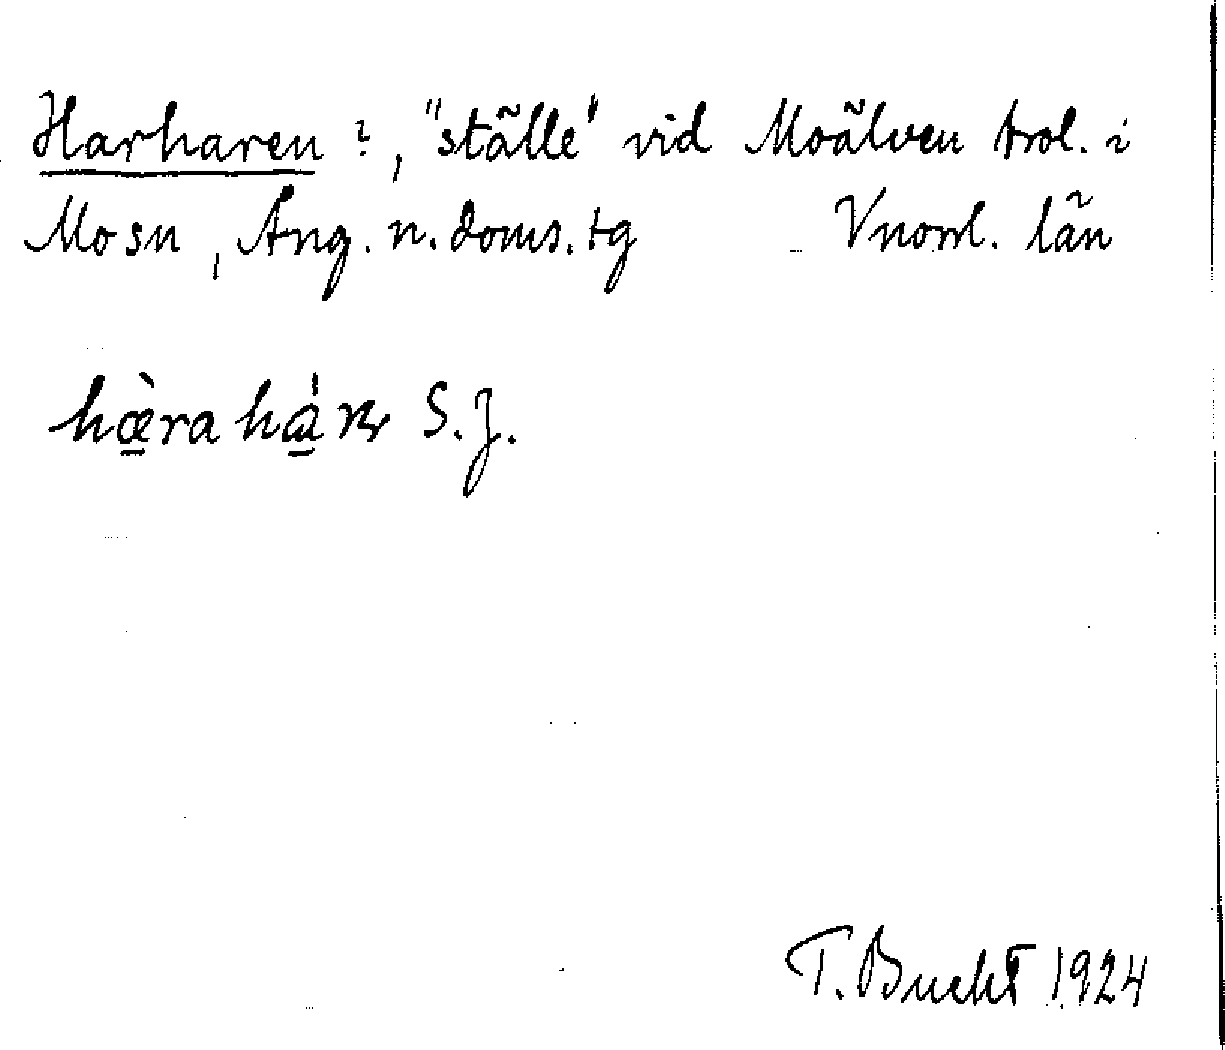 Harharen ?, "ställe" vid Moälven trol. i
Mo sn, Ång. n. doms. tg Vnorrl. län
hæ̀ra S. J.
T. Bucht 1924